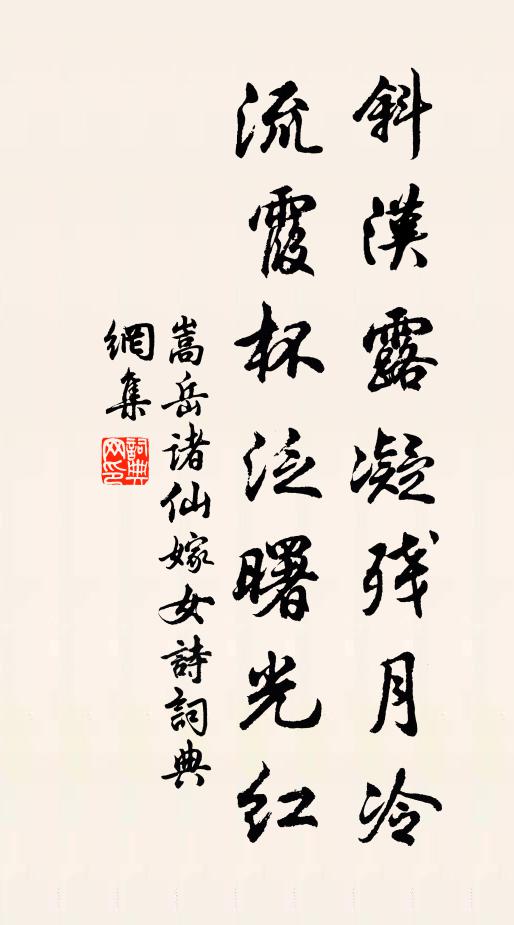 斜漢露凝残月冷
流霞杯泛曙光紅
嵩岳诸仙嫁女詩詞典
網集
詞典
网印